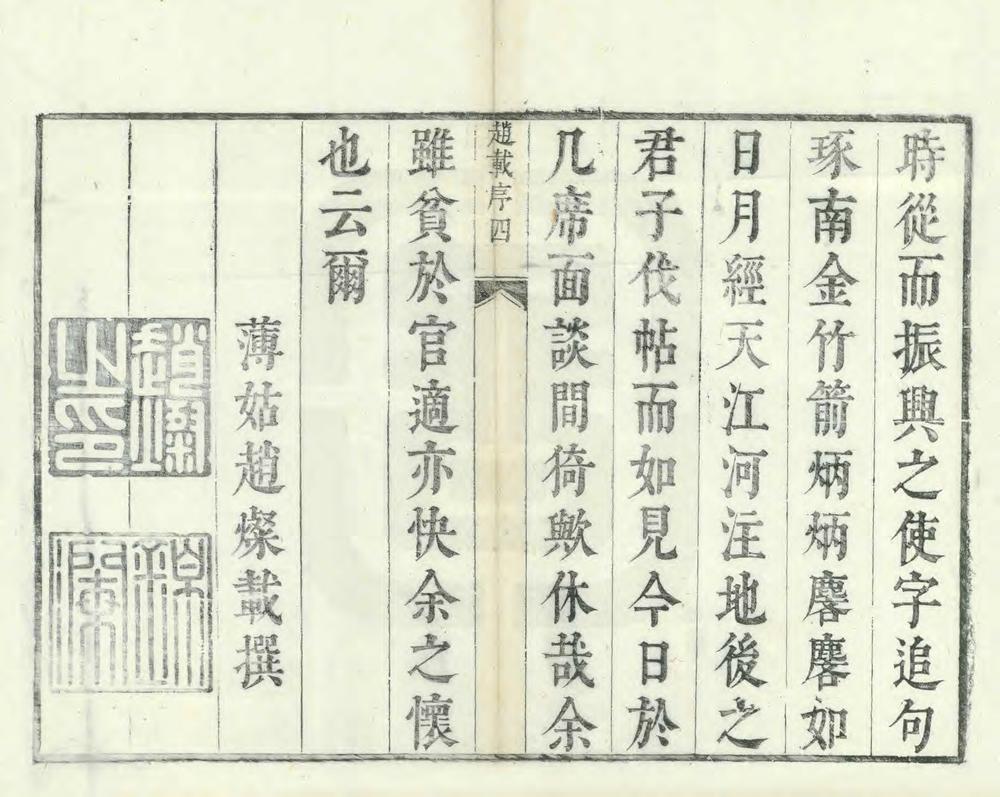 時從而振興之使字追句
琢南金竹箭炳炳麐麐如
日月經天江河注地後之
君子伐帖而如見今日於
几席面談間猗歟休哉余
趙載序四
雖貧於官適亦快余之懷
也云爾
薄姑趙燦載撰
趙
之印